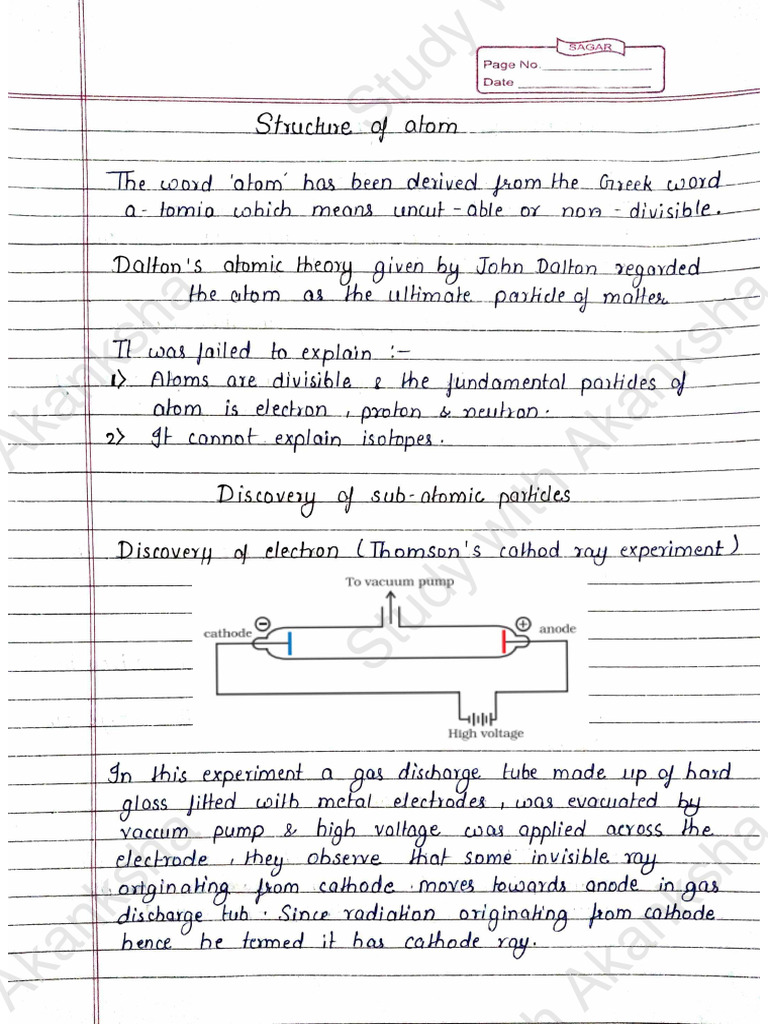 SAGAR
Page No.
Date
Structure of atom
The word 'atom' has been derived from the Greek word
a-tomia which means uncut-able or non-divisible.
Dalton's atomic theory given by John Dalton regarded
the atom as the ultimate particle of matter
It was failed to explain :-
1> Atoms are divisible & the fundamental particles of
atom is electron, proton & neutron.
2> It cannot explain isotopes.
Discovery of sub-atomic particles
Discovery of electron (Thomson's cathod ray experiment)
To vacuum pump
cathode
anode
High voltage
In this experiment a gas discharge tube made up of hard
glass fitted with metal electrodes, was evacuated by
vaccum pump & high voltage was applied across the
electrode, they observe that some invisible ray
originating from cathode moves towards anode in gas
discharge tub. Since radiation originating from cathode
hence he termed it has cathode ray.
Study with Akanksha